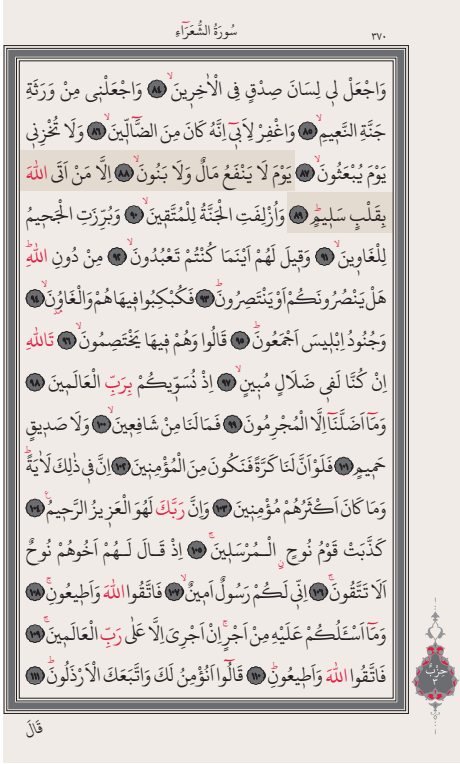 سُورَةُ الشُّعَرَٓاءِ
٣٧٠
وَاجْعَلْ لٖي لِسَانَ صِدْقٍ فِي الْاٰخِرٖينَۙ ﴿٨٤﴾ وَاجْعَلْنٖي مِنْ وَرَثَةِ
جَنَّةِ النَّعٖيمِۙ ﴿٨٥﴾ وَاغْفِرْ لِاَبٖٓي اِنَّهُ كَانَ مِنَ الضَّٓالّٖينَۙ ﴿٨٦﴾ وَلَا تُخْزِنٖي
يَوْمَ يُبْعَثُونَۙ ﴿٨٧﴾ يَوْمَ لَا يَنْفَعُ مَالٌ وَلَا بَنُونَۙ ﴿٨٨﴾ اِلَّا مَنْ اَتَى اللّٰهَ
بِقَلْبٍ سَلٖيمٍۜ ﴿٨٩﴾ وَاُزْلِفَتِ الْجَنَّةُ لِلْمُتَّقٖينَۙ ﴿٩٠﴾ وَبُرِّزَتِ الْجَحٖيمُ
لِلْغَاوٖينَۙ ﴿٩١﴾ وَقٖيلَ لَهُمْ اَيْنَمَا كُنْتُمْ تَعْبُدُونَۙ ﴿٩٢﴾ مِنْ دُونِ اللّٰهِۜ
هَلْ يَنْصُرُونَكُمْ اَوْ يَنْتَصِرُونَۜ ﴿٩٣﴾ فَكُبْكِبُوا فٖيهَا هُمْ وَالْغَاوُ۫نَۙ ﴿٩٤﴾
وَجُنُودُ اِبْلٖيسَ اَجْمَعُونَۜ ﴿٩٥﴾ قَالُوا وَهُمْ فٖيهَا يَخْتَصِمُونَۙ ﴿٩٦﴾ تَاللّٰهِ
اِنْ كُنَّا لَفٖي ضَلَالٍ مُبٖينٍۙ ﴿٩٧﴾ اِذْ نُسَوّٖيكُمْ بِرَبِّ الْعَالَمٖينَ ﴿٩٨﴾
وَمَٓا اَضَلَّنَٓا اِلَّا الْمُجْرِمُونَ ﴿٩٩﴾ فَمَا لَنَا مِنْ شَافِعٖينَۙ ﴿١٠٠﴾ وَلَا صَدٖيقٍ
حَمٖيمٍ ﴿١٠١﴾ فَلَوْ اَنَّ لَنَا كَرَّةً فَنَكُونَ مِنَ الْمُؤْمِنٖينَ ﴿١٠٢﴾ اِنَّ فٖي ذٰلِكَ لَاٰيَةًۜ
وَمَا كَانَ اَكْثَرُهُمْ مُؤْمِنٖينَ ﴿١٠٣﴾ وَاِنَّ رَبَّكَ لَهُوَ الْعَزٖيزُ الرَّحٖيمُ۟ ﴿١٠٤﴾
كَذَّبَتْ قَوْمُ نُوحٍۨ الْمُرْسَلٖينَۚ ﴿١٠٥﴾ اِذْ قَالَ لَهُمْ اَخُوهُمْ نُوحٌ
اَلَا تَتَّقُونَۚ ﴿١٠٦﴾ اِنّٖي لَكُمْ رَسُولٌ اَمٖينٌۙ ﴿١٠٧﴾ فَاتَّقُوا اللّٰهَ وَاَطٖيعُونِۚ ﴿١٠٨﴾
وَمَٓا اَسْـَٔلُكُمْ عَلَيْهِ مِنْ اَجْرٍۚ اِنْ اَجْرِيَ اِلَّا عَلٰى رَبِّ الْعَالَمٖينَۚ ﴿١٠٩﴾
فَاتَّقُوا اللّٰهَ وَاَطٖيعُونِۜ ﴿١١٠﴾ قَالُٓوا اَنُؤْمِنُ لَكَ وَاتَّبَعَكَ الْاَرْذَلُونَۜ ﴿١١١﴾
حِزْبُ
٣
قَالَ